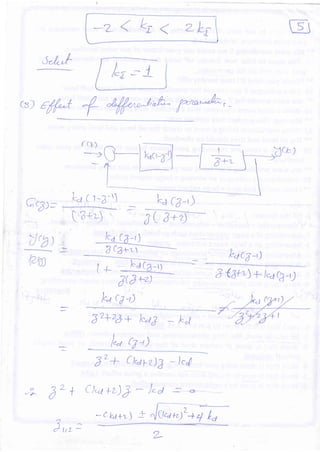 5
-2 < kI < 2kI
Select kI = 1
(3) Effect of differentiation parameter.
r(t) → kd(1-z⁻¹) → 1/(z+2) → y(t)
-
G(z) = kd(1-z⁻¹)/(z+2) = kd(z-1)/(z(z+2))
Y(z)/R(z) = (kd(z-1)/(z(z+2)))/(1 + kd(z-1)/(z(z+2))) = kd(z-1)/(z(z+2)+kd(z-1))
= kd(z-1)/(z²+2z+kdz-kd)
= kd(z-1)/(z²+(kd+2)z-kd)
z² + (kd+2)z - kd = 0
z1,2 = (-(kd+2) ± √((kd+2)²+4kd))/2